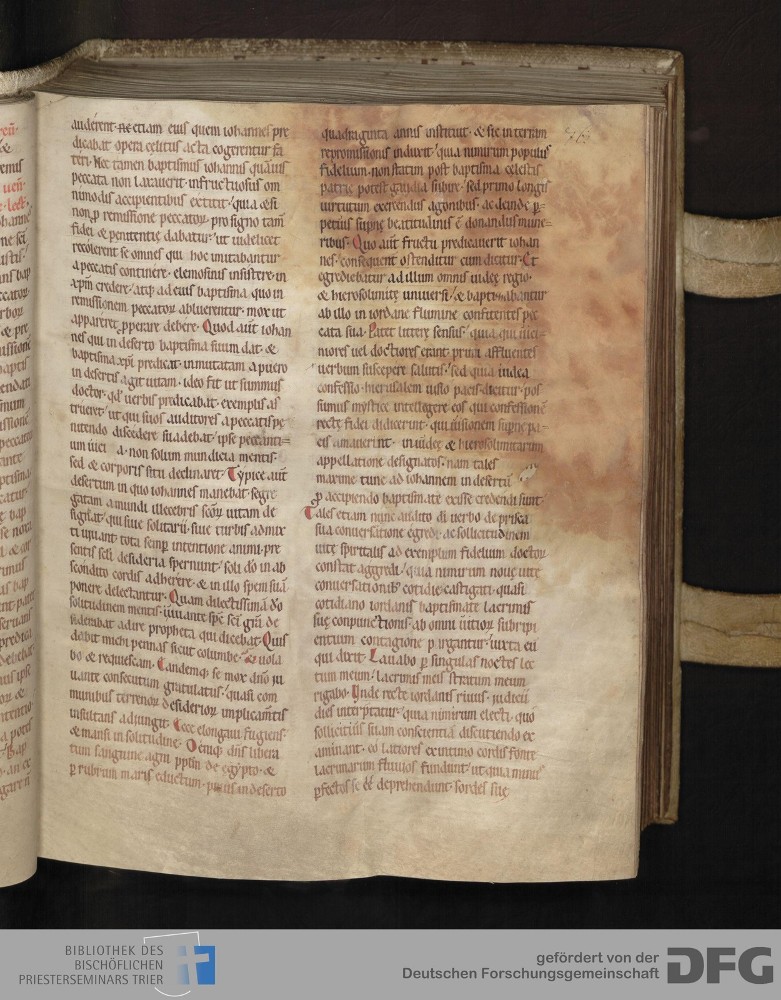 auderent. Ne etiam eius quem iohannes pre
dicabat opera celitus acta cogerentur fa
teri. Nec tamen baptismus iohannis quāuis
peccata non laxauerit. infructuosus om
nimodis accipientibus extitit. quia & si
non ꝓ remissione peccatoꝝ pro signo tam̄
fidei & penitentię dabatur. ut uidelicet
recolerent se omnes qui hoc imitabantur
a peccatis continere. elemosinis insistere. in
xp̄m credere. atq; ad eius baptisma quo in
remissionem peccatoꝝ abluerentur. mox ut
appareret ꝓperare debere. Quod aūt iohan
nes qui in deserto baptisma suum dat. &
baptisma xp̄i predicat. inmutatam a puero
in desertis agit uitam. ideo fit ut summus
doctor. qd̄ uerbis predicabat. exemplis as
trueret. ut qui suos auditores a peccatis pę
nitendo discedere suadebat. ipse peccanti
um
a. non solum mundicia mentis.
sed & corporis situ declinaret. Typice aūt
desertum in quo iohannes manebat. segre
gatam a mundi illecebris scōꝝ uitam de
signat. qui siue solitarii. siue turbis admix
ti uiuant. tota semꝑ intentione animi pre
sentis scłi desideria spernunt. soli dō in ab
scondito cordis adherere. & in illo spem suā
ponere delectantur. Quam dilectissimā dō
solitudinem mentis. iuuante spс̄ scī gr̄a de
siderabat adire propheta qui dicebat. Quis
dabit michi pennas sicut columbe. & uola
bo & requiescam. Eandemq; se mox dn̄o iu
uante consecutum gratulatus. quasi com
munibus terrenoꝝ desiderioꝝ implicam̄tis
insultans adiungit. Ecce elongaui fugiens.
& mansi in solitudine. Deniq; dn̄s libera
tum sanguine agni pp̄lm̄ de egypto. &
ꝑ rubrum maris eductum. prius in deserto
quadraginta annis instituit. & sic in terram
repromissionis induxit. quia nimirum populus
fidelium. non statim post baptisma cęlestis
patrię potest gaudia subire. sed primo longis
uirtutum exercendus agonibus. ac deinde ꝑ
petuis supnę beatitudinis ē donandus mune
ribus. Quo aūt fructu predicauerit iohan
nes. consequent ostenditur cum dicitur. Et
egrediebatur ad illum omnis iudeę regio.
& hierosolimitę uniuersi. & baptizabantur
ab illo in iordane flumine confitentes pec
cata sua. Patet litterę sensus. quia qui
niores uel doctiores erant. primi affluentes
uerbum suscepere salutis. sed quia iudea
confessio. hierusalem uisio pacis dicitur. pos
sumus mystice intelligere eos qui confessionē
rectę fidei didicerint. qui uisionem supnę pa
cis amauerint. in iudeę & hierosolimitarum
appellatione designatos. nam tales
maxime tunc ad iohannem in desertū
ꝓ accipiendo baptismate exisse credendi sunt.
Tales etiam nunc audito di uerbo de prisca
sua conuersatione egredi. ac sollicitudinem
uitę spiritalis ad exemplum fidelium doctoꝝ
constat aggredi. quia nimirum nouę uitę
conuersationib; cotidie castigati. quasi
cotidiano iordanis baptismate lacrimis
suę conpunctionis ab omni uitioꝝ subripi
entium contagione purgantur. iuxta eū
qui dixit. Lauabo ꝑ singulas noctes lec
tum meum. lacrimis meis stratum meum
rigabo. Unde recte iordanis riuus. iudicii
dies interpretatur. quia nimirum electi. quo
sollicitius suam conscientiā discutiendo ex
aminant. eo latiores ex intimo cordis fonte
lacrimarum fluuios fundunt. ut quia minus
ꝑfectos se eē deprehendunt. sordes suę
BIBLIOTHEK DES
BISCHÖFLICHEN
PRIESTERSEMINARS TRIER
gefördert von der
Deutschen Forschungsgemeinschaft
DFG